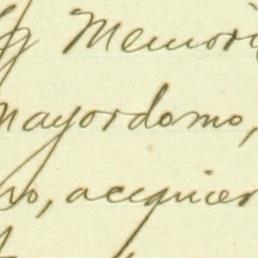 Memori
mayordomo,
no, acequier